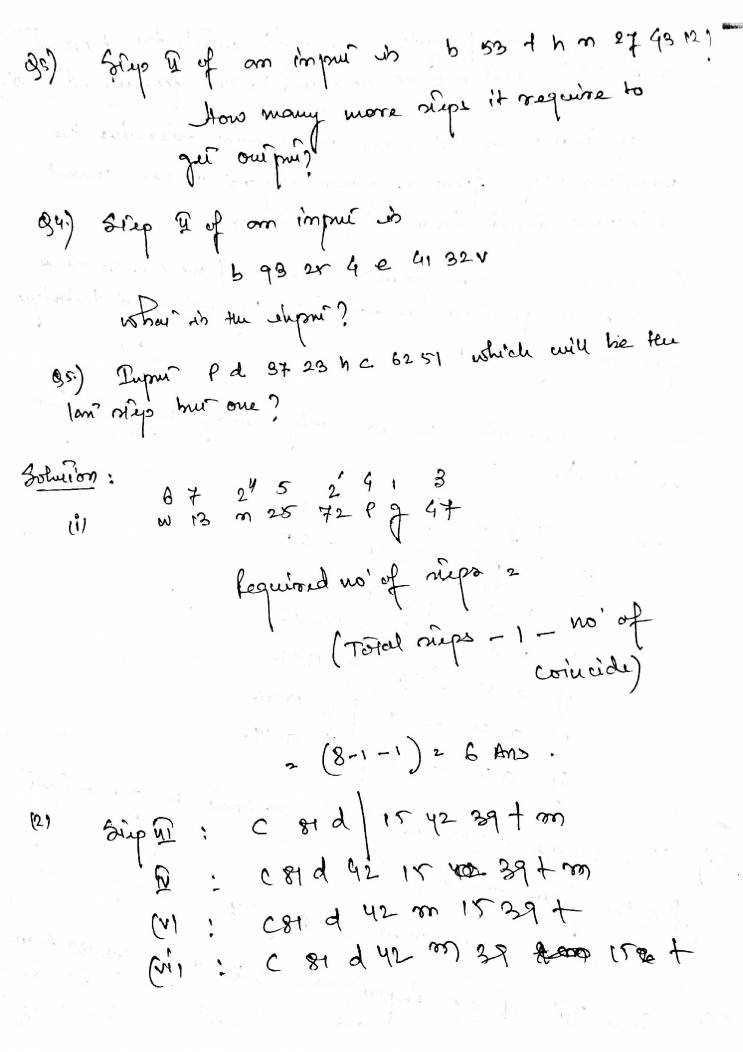 Q3) Step II of an input is b 53 t h n 27 43 12?
How many more steps it require to
get output?
Q4.) Step II of an input is
b 93 2r 4 e 41 32 v
What is the input?
Q5.) Input P d 37 23 h c 62 51 which will be the
last step but one?
Solution :
6 7 2" 5 2' 4 1 3
(i) w 13 n 25 72 P g 47
Required no' of steps =
(Total steps - 1 - no' of
coincide)
= (8-1-1) = 6 Ans.
(2) Step III : C 81 d | 15 42 39 t m
IV : C 81 d 42 15 39 t m
(V) : C 81 d 42 m 15 39 t
(vi) : C 81 d 42 m 39 15 t